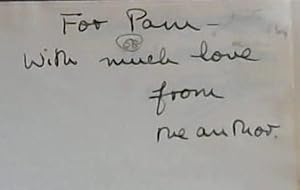 For Pam –
With much love
from
the author.